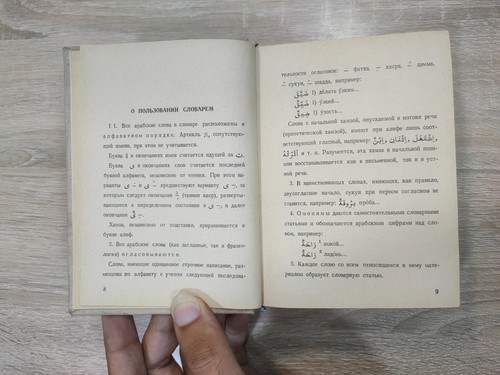 О ПОЛЬЗОВАНИИ СЛОВАРЕМ
1. Все арабские слова в словаре расположены в
алфавитном порядке. Артикль ال, сопутствую-
щий имени, при этом не учитывается.
Буква ة в окончаниях имен считается идущей за ت.
Буква ى в окончаниях слов считается последней
буквой алфавита, независимо от чтения. При этом ва-
рианты ـِ ى и ـَ ى предшествуют варианту ـً ى, за
которым следует окончание ـٍ (танвин касра), развертываю-
щееся в определенном состоянии в ـِ ى, и далее
окончание ىّ.
Хамза, независимо от подставки, приравнивается к
букве алиф.
2. Все арабские слова (как заглавные, так и фразео-
логия) огласовываются.
Слова, имеющие одинаковое строчное написание, раз-
мещены по алфавиту с учетом следующей последова-
8
тельности огласовок: ـَ фатха, ـِ касра, ـُ дамма,
ـْ сукун, ـّ шадда, например:
ضَيَّقَ 1) де́лать у́зким...
ضَيِّقٌ 1) у́зкий...
ضِيقٌ 1) у́зость...
Слова с начальной хамзой, опускаемой в потоке речи
(протетической хамзой), имеют при алифе лишь соот-
ветствующий гласный, например: اِشْتَعَلَ, اِقْتِرَانٌ, اِبْنٌ,
اُتْرُكْهُ и т. п. Разумеется, эта хамза в начальной пози-
ции восстанавливается как в письменной, так и в уст-
ной речи.
3. В заимствованных словах, имеющих, как правило,
двугласное начало, сукун при первом согласном не
ставится, например: بروفَةٌ про́ба...
4. Омонимы даются самостоятельными словарными
статьями и обозначаются арабскими цифрами над сло-
вом, например:
رَاحَةٌ ¹ поко́й...
رَاحَةٌ ² ладо́нь...
5. Каждое слово со всем относящимся к нему мате-
риалом образует словарную статью.
9